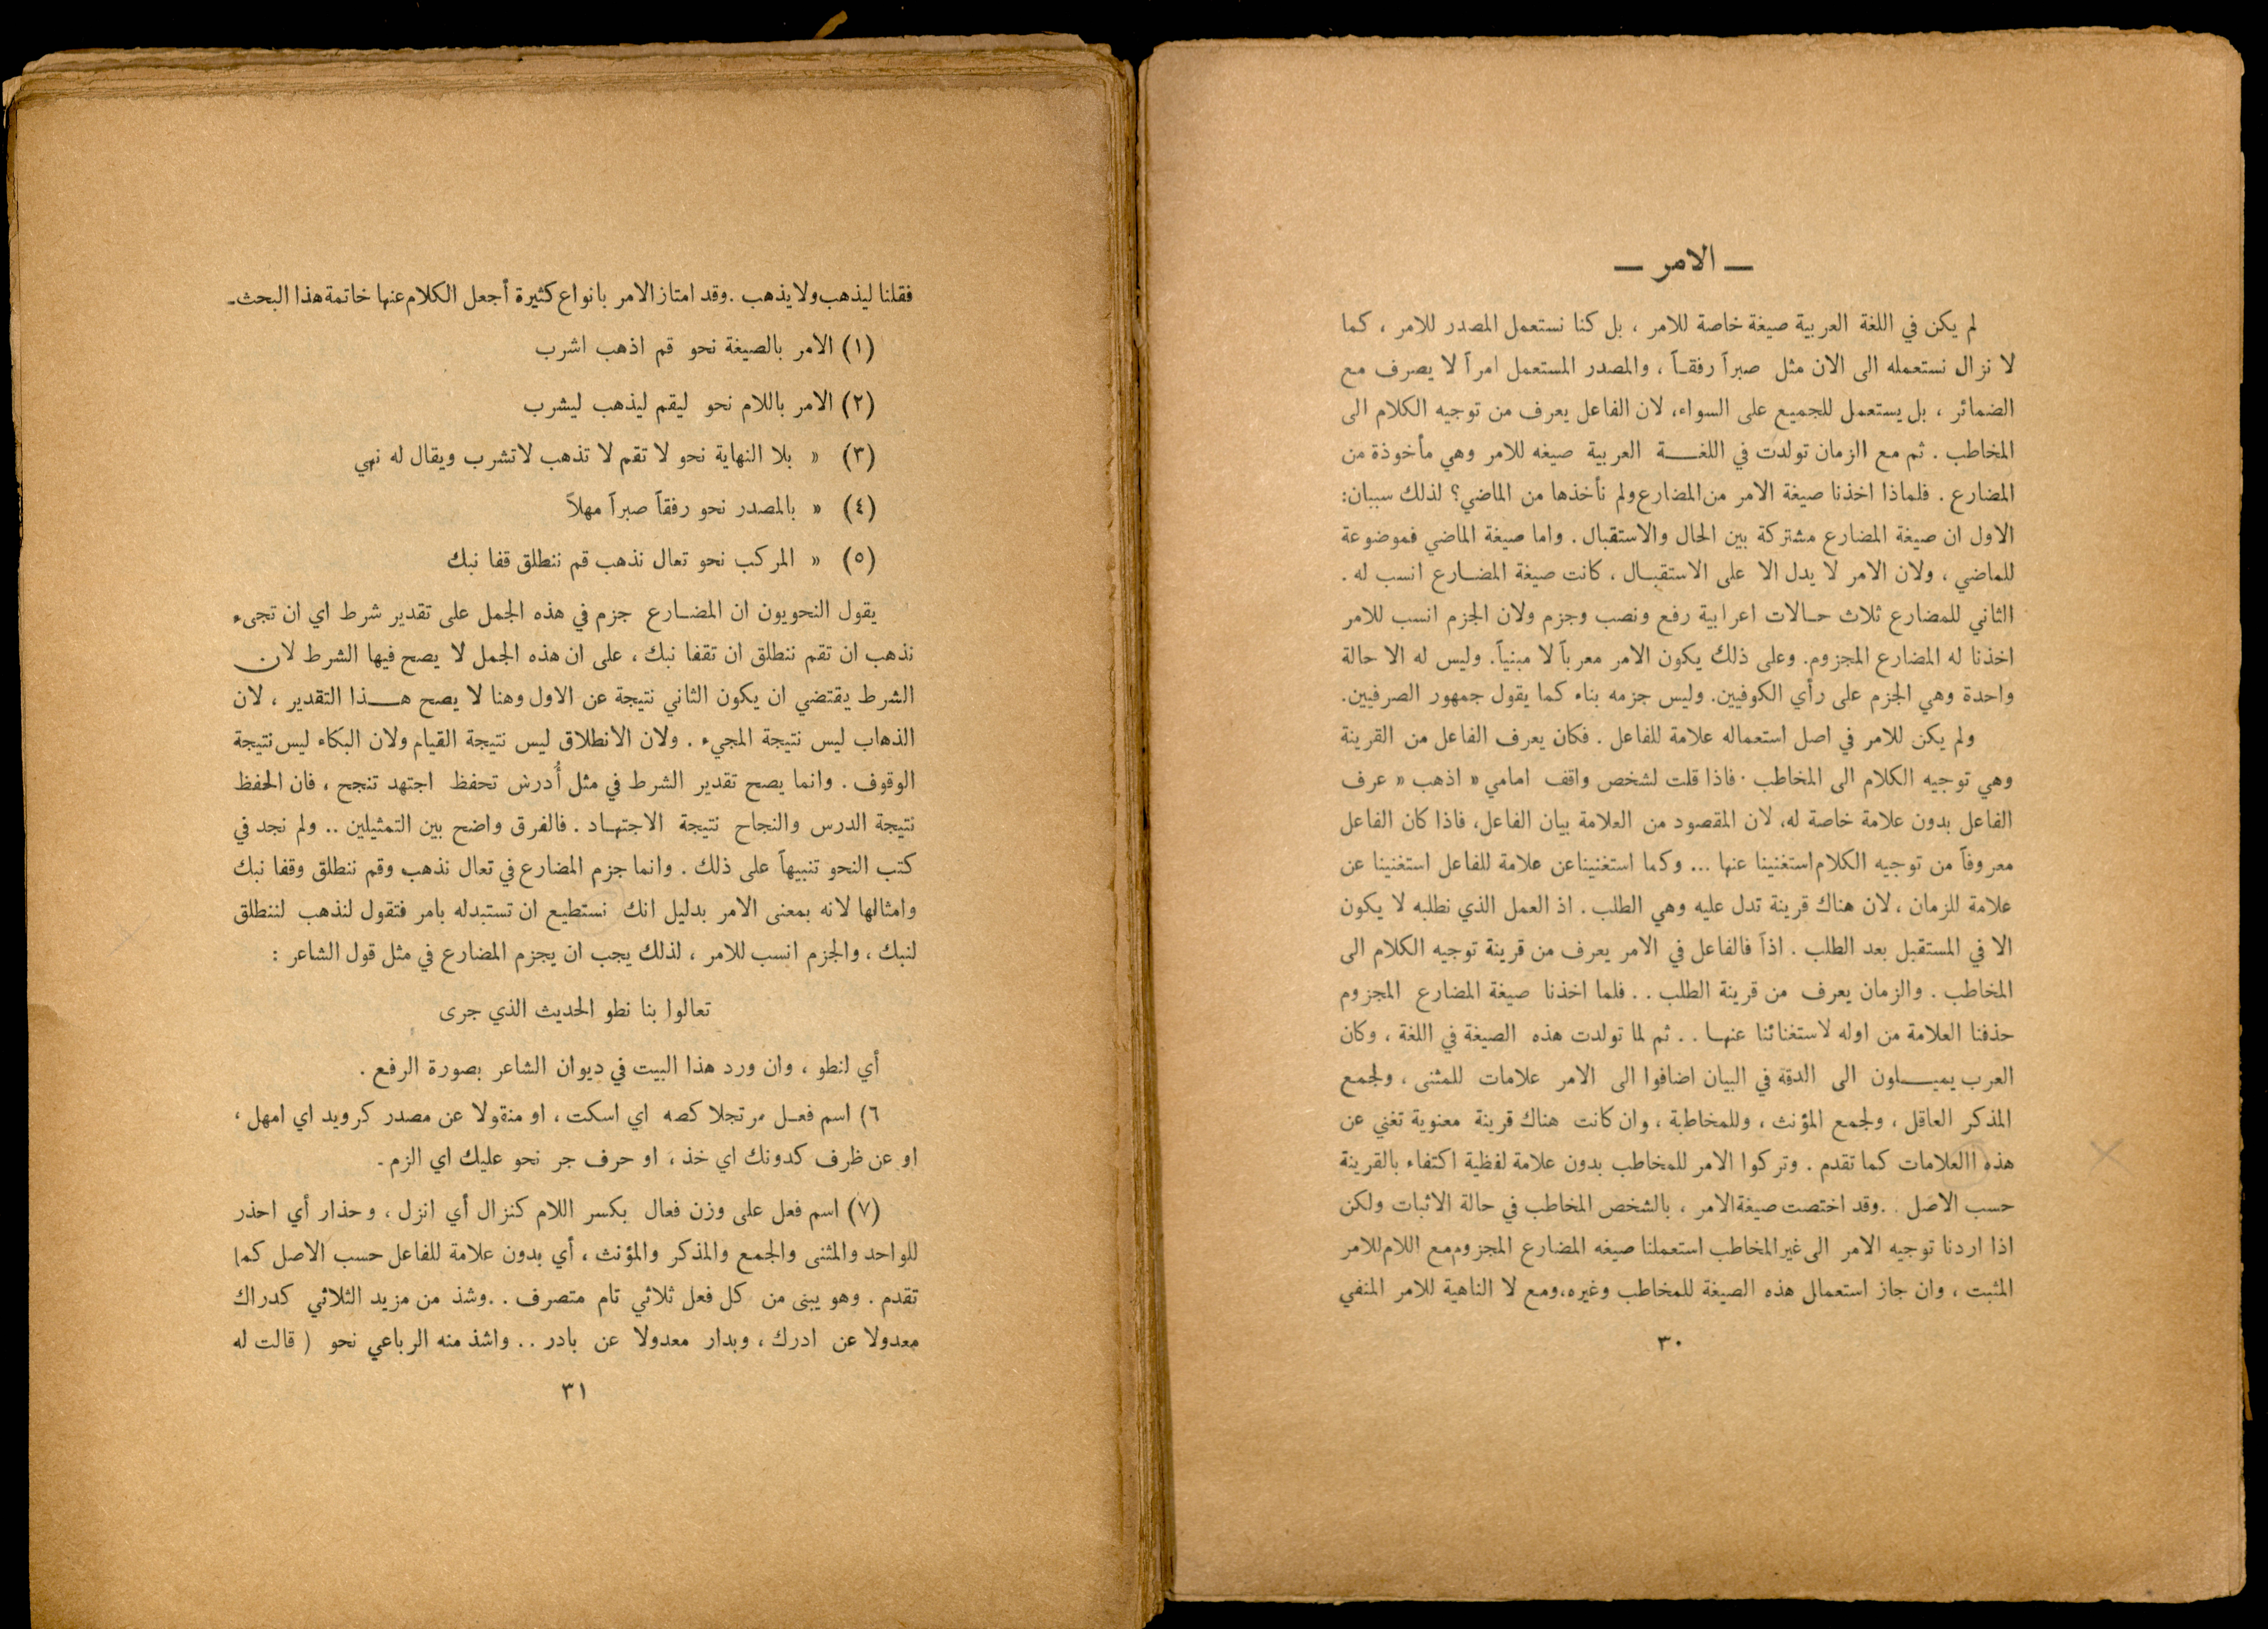 — الامر —
لم يكن في اللغة العربية صيغة خاصة للامر ، بل كنا نستعمل المصدر للامر ، كما
لا نزال نستعمله الى الان مثل صبراً رفقاً ، والمصدر المستعمل امراً لا يصرف مع
الضمائر ، بل يستعمل للجميع على السواء، لان الفاعل يعرف من توجيه الكلام الى
المخاطب . ثم مع الزمان تولدت في اللغة العربية صيغه للامر وهي مأخوذة من
المضارع . فلماذا اخذنا صيغة الامر من المضارع ولم نأخذها من الماضي؟ لذلك سببان:
الاول ان صيغة المضارع مشتركة بين الحال والاستقبال . واما صيغة الماضي فموضوعة
للماضي ، ولان الامر لا يدل الا على الاستقبال ، كانت صيغة المضارع انسب له .
الثاني للمضارع ثلاث حالات اعرابية رفع ونصب وجزم ولان الجزم انسب للامر
اخذنا له المضارع المجزوم. وعلى ذلك يكون الامر معرباً لا مبنياً. وليس له الا حالة
واحدة وهي الجزم على رأي الكوفيين. وليس جزمه بناء كما يقول جمهور الصرفيين.
ولم يكن للامر في اصل استعماله علامة للفاعل . فكان يعرف الفاعل من القرينة
وهي توجيه الكلام الى المخاطب . فاذا قلت لشخص واقف امامي « اذهب » عرف
الفاعل بدون علامة خاصة له، لان المقصود من العلامة بيان الفاعل، فاذا كان الفاعل
معروفاً من توجيه الكلام استغنينا عنها ... وكما استغنينا عن علامة للفاعل استغنينا عن
علامة للزمان ، لان هناك قرينة تدل عليه وهي الطلب . اذ العمل الذي نطلبه لا يكون
الا في المستقبل بعد الطلب . اذاً فالفاعل في الامر يعرف من قرينة توجيه الكلام الى
المخاطب . والزمان يعرف من قرينة الطلب . . فلما اخذنا صيغة المضارع المجزوم
حذفنا العلامة من اوله لاستغنائنا عنها . . ثم لما تولدت هذه الصيغة في اللغة ، وكان
العرب يميلون الى الدقة في البيان اضافوا الى الامر علامات للمثنى ، ولجمع
المذكر العاقل ، ولجمع المؤنث ، وللمخاطبة ، وان كانت هناك قرينة معنوية تغني عن
هذه االعلامات كما تقدم . وتركوا الامر للمخاطب بدون علامة لفظية اكتفاء بالقرينة
حسب الاصل . .وقد اختصت صيغة الامر ، بالشخص المخاطب في حالة الاثبات ولكن
اذا اردنا توجيه الامر الى غير المخاطب استعملنا صيغه المضارع المجزوم مع اللام للامر
المثبت ، وان جاز استعمال هذه الصيغة للمخاطب وغيره، ومع لا الناهية للامر المنفي
٣٠
فقلنا ليذهب ولا يذهب . وقد امتاز الامر بانواع كثيرة أجعل الكلام عنها خاتمة هذا البحث-
(١) الامر بالصيغة نحو قم اذهب اشرب
(٢) الامر باللام نحو ليقم ليذهب ليشرب
(٣) » بلا النهاية نحو لا تقم لا تذهب لاتشرب ويقال له نهي
(٤) » بالمصدر نحو رفقاً صبراً مهلاً
(٥) » المركب نحو تعال نذهب قم ننطلق قفا نبك
يقول النحويون ان المضارع جزم في هذه الجمل على تقدير شرط اي ان تجىء
نذهب ان تقم ننطلق ان تقفا نبك ، على ان هذه الجمل لا يصح فيها الشرط لان
الشرط يقتضي ان يكون الثاني نتيجة عن الاول وهنا لا يصح هذا التقدير ، لان
الذهاب ليس نتيجة المجيء . ولان الانطلاق ليس نتيجة القيام ولان البكاء ليس نتيجة
الوقوف . وانما يصح تقدير الشرط في مثل أُدرس تحفظ اجتهد تنجح ، فان الحفظ
نتيجة الدرس والنجاح نتيجة الاجتهاد . فالفرق واضح بين التمثيلين .. ولم نجد في
كتب النحو تنبيهاً على ذلك . وانما جزم المضارع في تعال نذهب وقم ننطلق وقفا نبك
وامثالها لانه بمعنى الامر بدليل انك نستطيع ان تستبدله بامر فتقول لنذهب لننطلق
لنبك ، والجزم انسب للامر ، لذلك يجب ان يجزم المضارع في مثل قول الشاعر :
تعالوا بنا نطو الحديث الذي جرى
أي لنطو ، وان ورد هذا البيت في ديوان الشاعر بصورة الرفع .
٦) اسم فعل مرتجلا كصه اي اسكت ، او منقولا عن مصدر كرويد اي امهل ،
او عن ظرف كدونك اي خذ ، او حرف جر نحو عليك اي الزم -
(٧) اسم فعل على وزن فعال بكسر اللام كنزال أي انزل ، وحذار أي احذر
للواحد والمثنى والجمع والمذكر والمؤنث ، أي بدون علامة للفاعل حسب الاصل كما
تقدم . وهو يبنى من كل فعل ثلاثي تام متصرف . .وشذ من مزيد الثلاثي كدراك
معدولا عن ادرك ، وبدار معدولا عن بادر . . واشذ منه الرباعي نحو ( قالت له
٣١